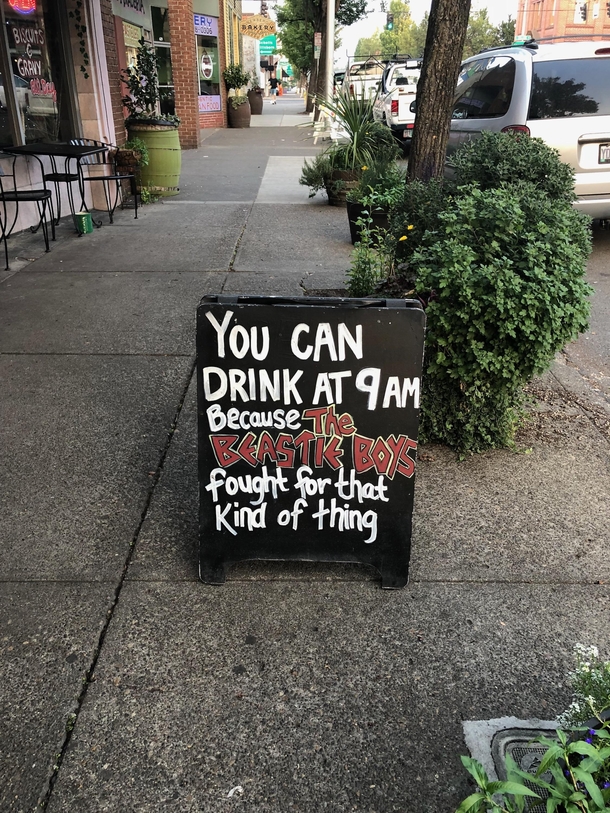 YOU CAN
DRINK AT 9 AM
Because The
BEASTIE BOYS
fought for that
Kind of thing
BISCUITS
&
GRAVY
BAKERY
ERY